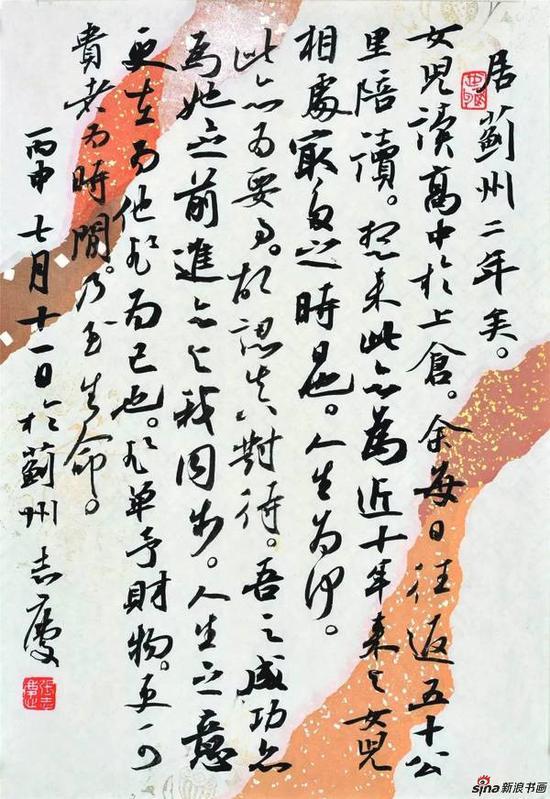 居薊州二年矣。
女兒讀高中於上倉。余每日往返五十公
里陪讀。想来此亦為近十年来与女兒
相處最多之時也。人生為何。
此亦为要事。故認真對待。吾之成功亦
為她之前進亦与我同步。人生之意
更在为他非为己也。非單予財物。更可
貴者为時間。乃至生命。
丙申七月十一日於薊州志慶
sina新浪书画